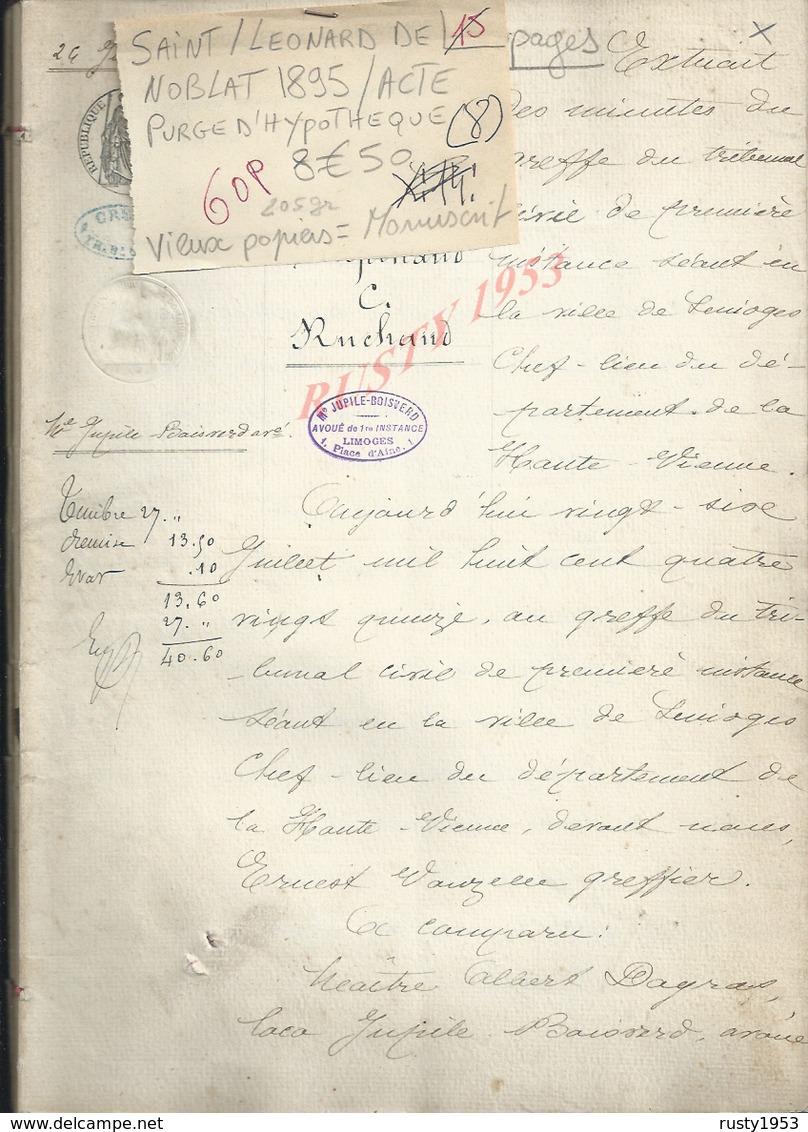 24
SAINT / LEONARD DE
NOBLAT 1895 / ACTE
PURGE D'HYPOTHEQUE (8)
8€50
60P
205gr
Vieux papiers = Manuscrit
15 pages
X
REPUBLIQUE
Extrait
des minutes du
greffe du tribunal
civil de première
instance séant en
la ville de Limoges
Chef-lieu du dé-
-partement de la
Haute-Vienne.
C.
Ruchaud
RUSTY 1953
Me Jupile Boisverd avé.
Me JUPILE-BOISVERD
AVOUÉ de 1re INSTANCE
LIMOGES
1, Place d'Aine, 1
Timbre 27. "
Remise 13.50
.10
13.60
27. "
40.60
Aujourd'hui vingt-six
Juillet mil huit cent quatre
vingt quinze, au greffe du tri-
-bunal civil de première instance
séant en la ville de Limoges
Chef-lieu du département de
la Haute-Vienne, devant nous,
Ernest Vouzelle greffier.
A comparu:
Maître Albert Dagras,
loco Jupile-Boisverd, avoué
delcampe.net
rusty1953